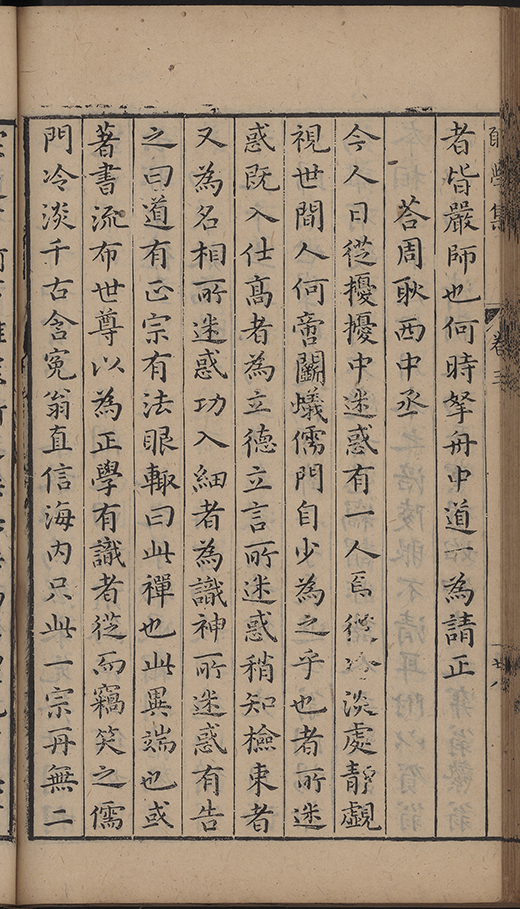 學集 卷三 廿八
者皆嚴師也何時拏舟中道一為請正
荅周耿西中丞
今人日從擾擾中迷惑有一人焉從冷淡處靜覷
視世間人何啻鬭蟻儒門自少為之乎也者所迷
惑既入仕高者為立德立言所迷惑稍知檢束者
又為名相所迷惑功入細者為識神所迷惑有告
之曰道有正宗有法眼輙曰此禪也此異端也或
著書流布世尊以為正學有識者從而竊笑之儒
門冷淡千古含寃翁直信海內只此一宗再無二